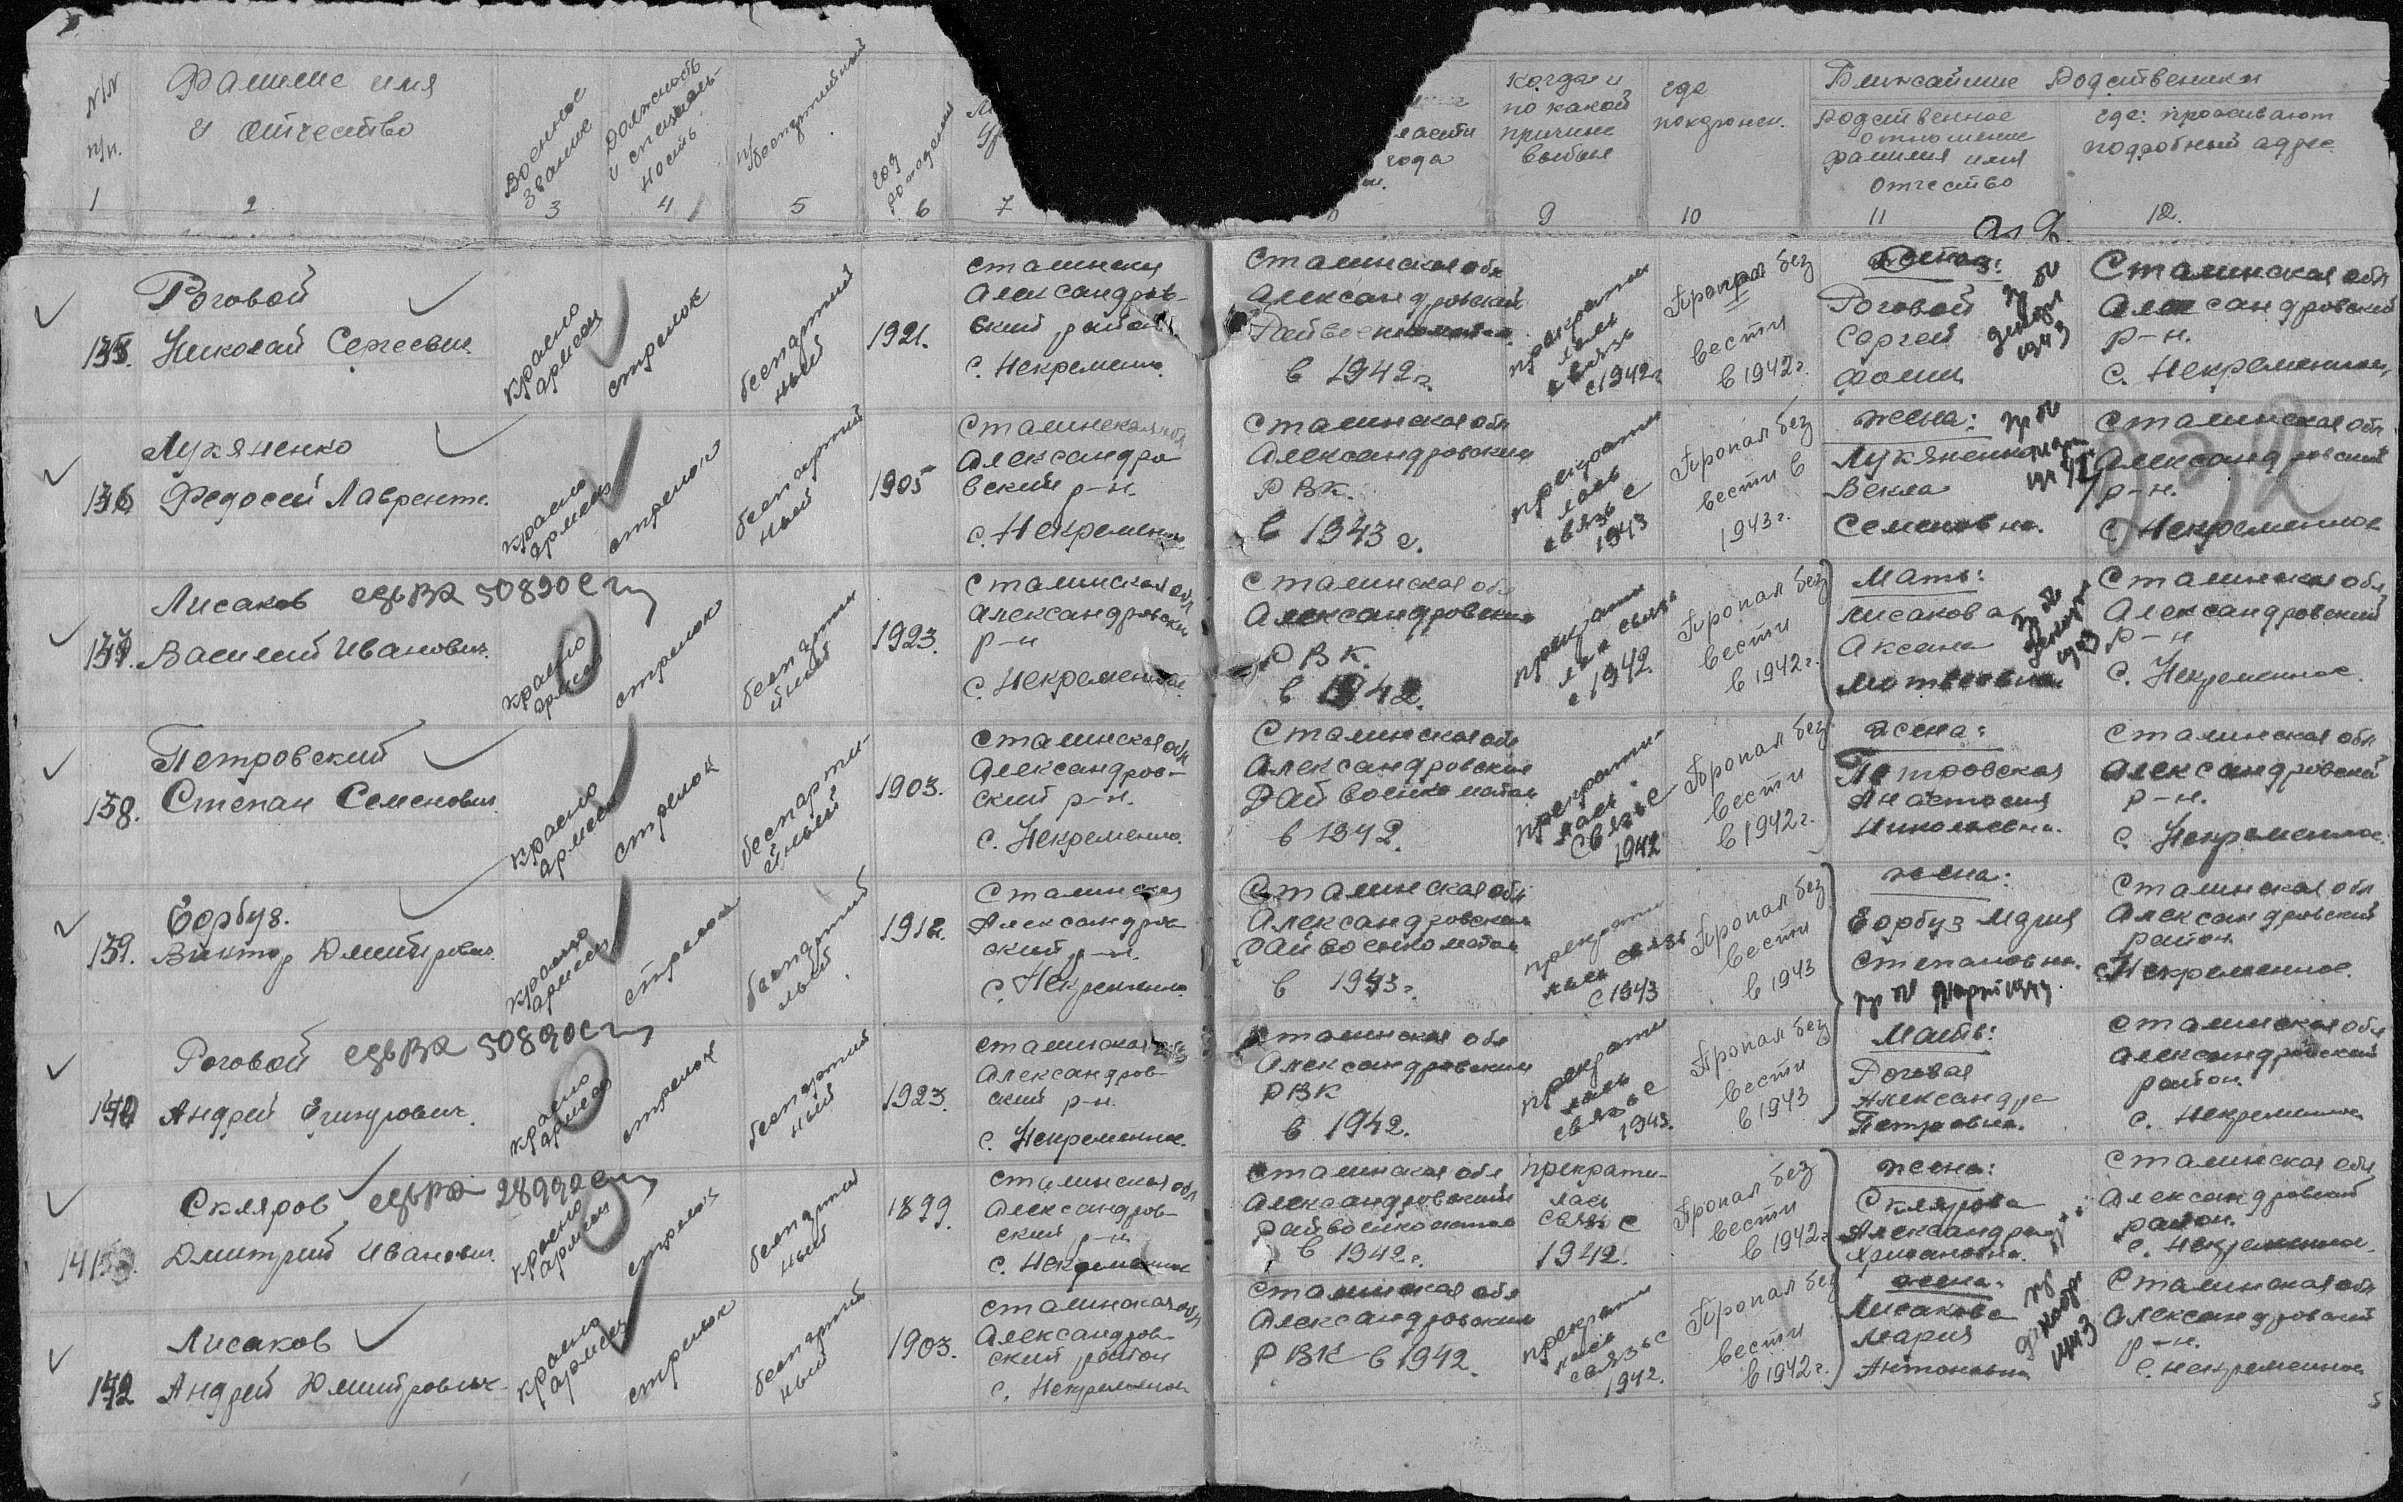 N/N п/п.
Фамилие имя и отчество
Военное звание
Должность и специаль-ность
п/беспартийный
год рождения
когда и по какой причине выбыл
где похоронен.
Ближайшие родственики
Родственное отношение фамилия имя отчество
где проживают подробный адрес
1 2 3 4 5 6 7 8 9 10 11 12.
Роговой
135. Николай Сергеевич
красно армеец
стрелок
беспартий ный
1921.
Сталинская
Александров-
ский район
с. Некременно.
Сталинская обл
Александровский
Райвоенкомат
в 1942 г.
прекрати лась связь с 1942 г
Пропал без вести в 1942 г.
Роговой
Сергей
Фомич
Сталинская обл
Александровский
р-н.
с. Некременное
Лукяненко
136 Федосей Лаврент.
красно армеец
стрелок
беспартий ный
1905
Сталинская обл
Александро
вский р-н.
с. Некременн
Сталинская обл
Александровский
РВК.
в 1943 г.
прекрати лась связь с 1943
Пропал без вести в 1943 г.
жена:
Лукяненко
Векла
Семеновна.
Сталинская обл
Александровский
р-н.
с. Некременное
932
Лисаков 50890с
137. Василий Иванович.
красно армеец
стрелок
беспарти йный
1923.
Сталинская обл
Александровский
р-н
с. Некременное.
Сталинская обл
Александровский
РВК.
в 1942.
прекрати лась связь с 1942.
Пропал без вести в 1942 г.
Мать:
Лисакова
Аксана
Матвеевна
Сталинская обл
Александровский
р-н
с. Некременное.
Петровский
138. Степан Семенович
красно армеец
стрелок
беспарти-йный
1903.
Сталинская обл
Александров-
ский р-н.
с. Некременно.
Сталинская обл
Александровский
Райвоенкомат
в 1942.
прекрати-лась связь с 1942
Пропал без вести в 1942 г.
жена:
Петровская
Анастасия
Николаевна.
Сталинская обл
Александровский
р-н.
с. Некременное.
Горбуз.
139. Виктор Дмитрович.
красно армеец
стрелок
беспартий ный
1912.
Сталинская
Александров
ский р-н.
с. Некременно.
Сталинская обл
Александровский
райвоенкомат
в 1943 г.
прекрати лась связь с 1943
Пропал без вести в 1943
жена:
Горбуз Мария
Степановна.
Сталинская обл
Александровский
район
с. Некременное.
Роговой 50890с
140 Андрей
красно армеец
стрелок
беспартий ный
1923.
Сталинская обл
Александров-
ский р-н.
с. Некременное.
Сталинская обл
Александровский
РВК
в 1942.
прекрати лась связь с 1943.
Пропал без вести в 1943
Мать:
Роговая
Александра
Петровна.
Сталинская обл
Александровский
район
с. Некременное
Скляров
141 Дмитрий Иванович.
красно армеец
стрелок
беспартий ный
1899.
Сталинская обл
Александров-
ский р-н
с. Некременное
Сталинская обл
Александровский
Райвоенкомат
в 1942 г.
прекрати-
лась
связь с
1942.
Пропал без вести в 1942 г.
жена:
Склярова
Александра
Сталинская обл
Александровский
район.
с. Некременное.
Лисаков
142 Андрей Дмитрович
красно армеец
стрелок
беспартий ный
1903.
Сталинская обл
Александров-
ский район
с. Некременное
Сталинская обл
Александровский
РВК в 1942.
прекрати лась связь с 1942.
Пропал без вести в 1942 г.
жена.
Лисакова
Мария
Антоновна
декабрь 1943
Сталинская обл
Александровский
р-н.
с. Некременное